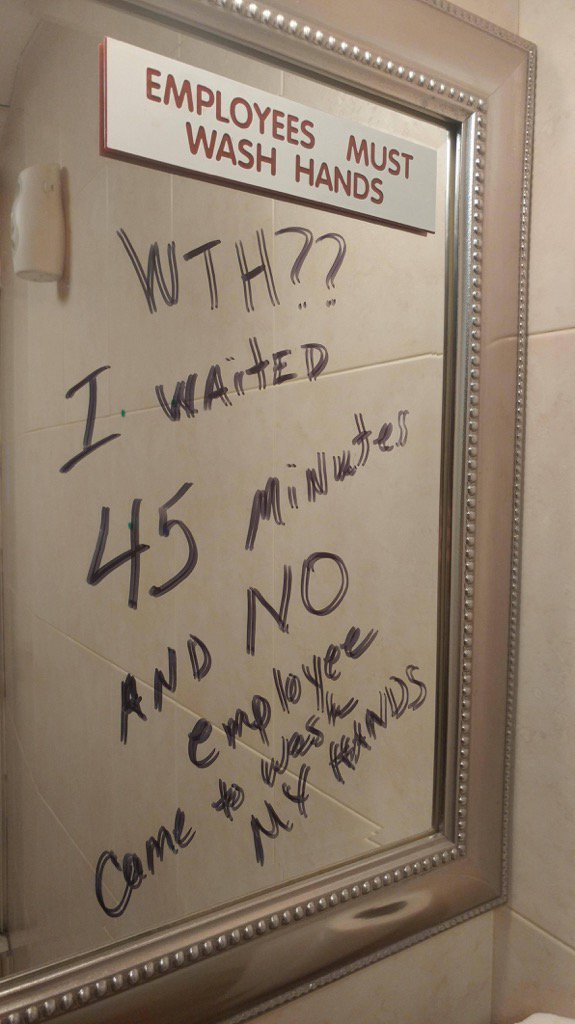 EMPLOYEES MUST
WASH HANDS
WTH??
I WAITED
45 MINUtes
AND NO
employee
Came to wash
MY HANDS